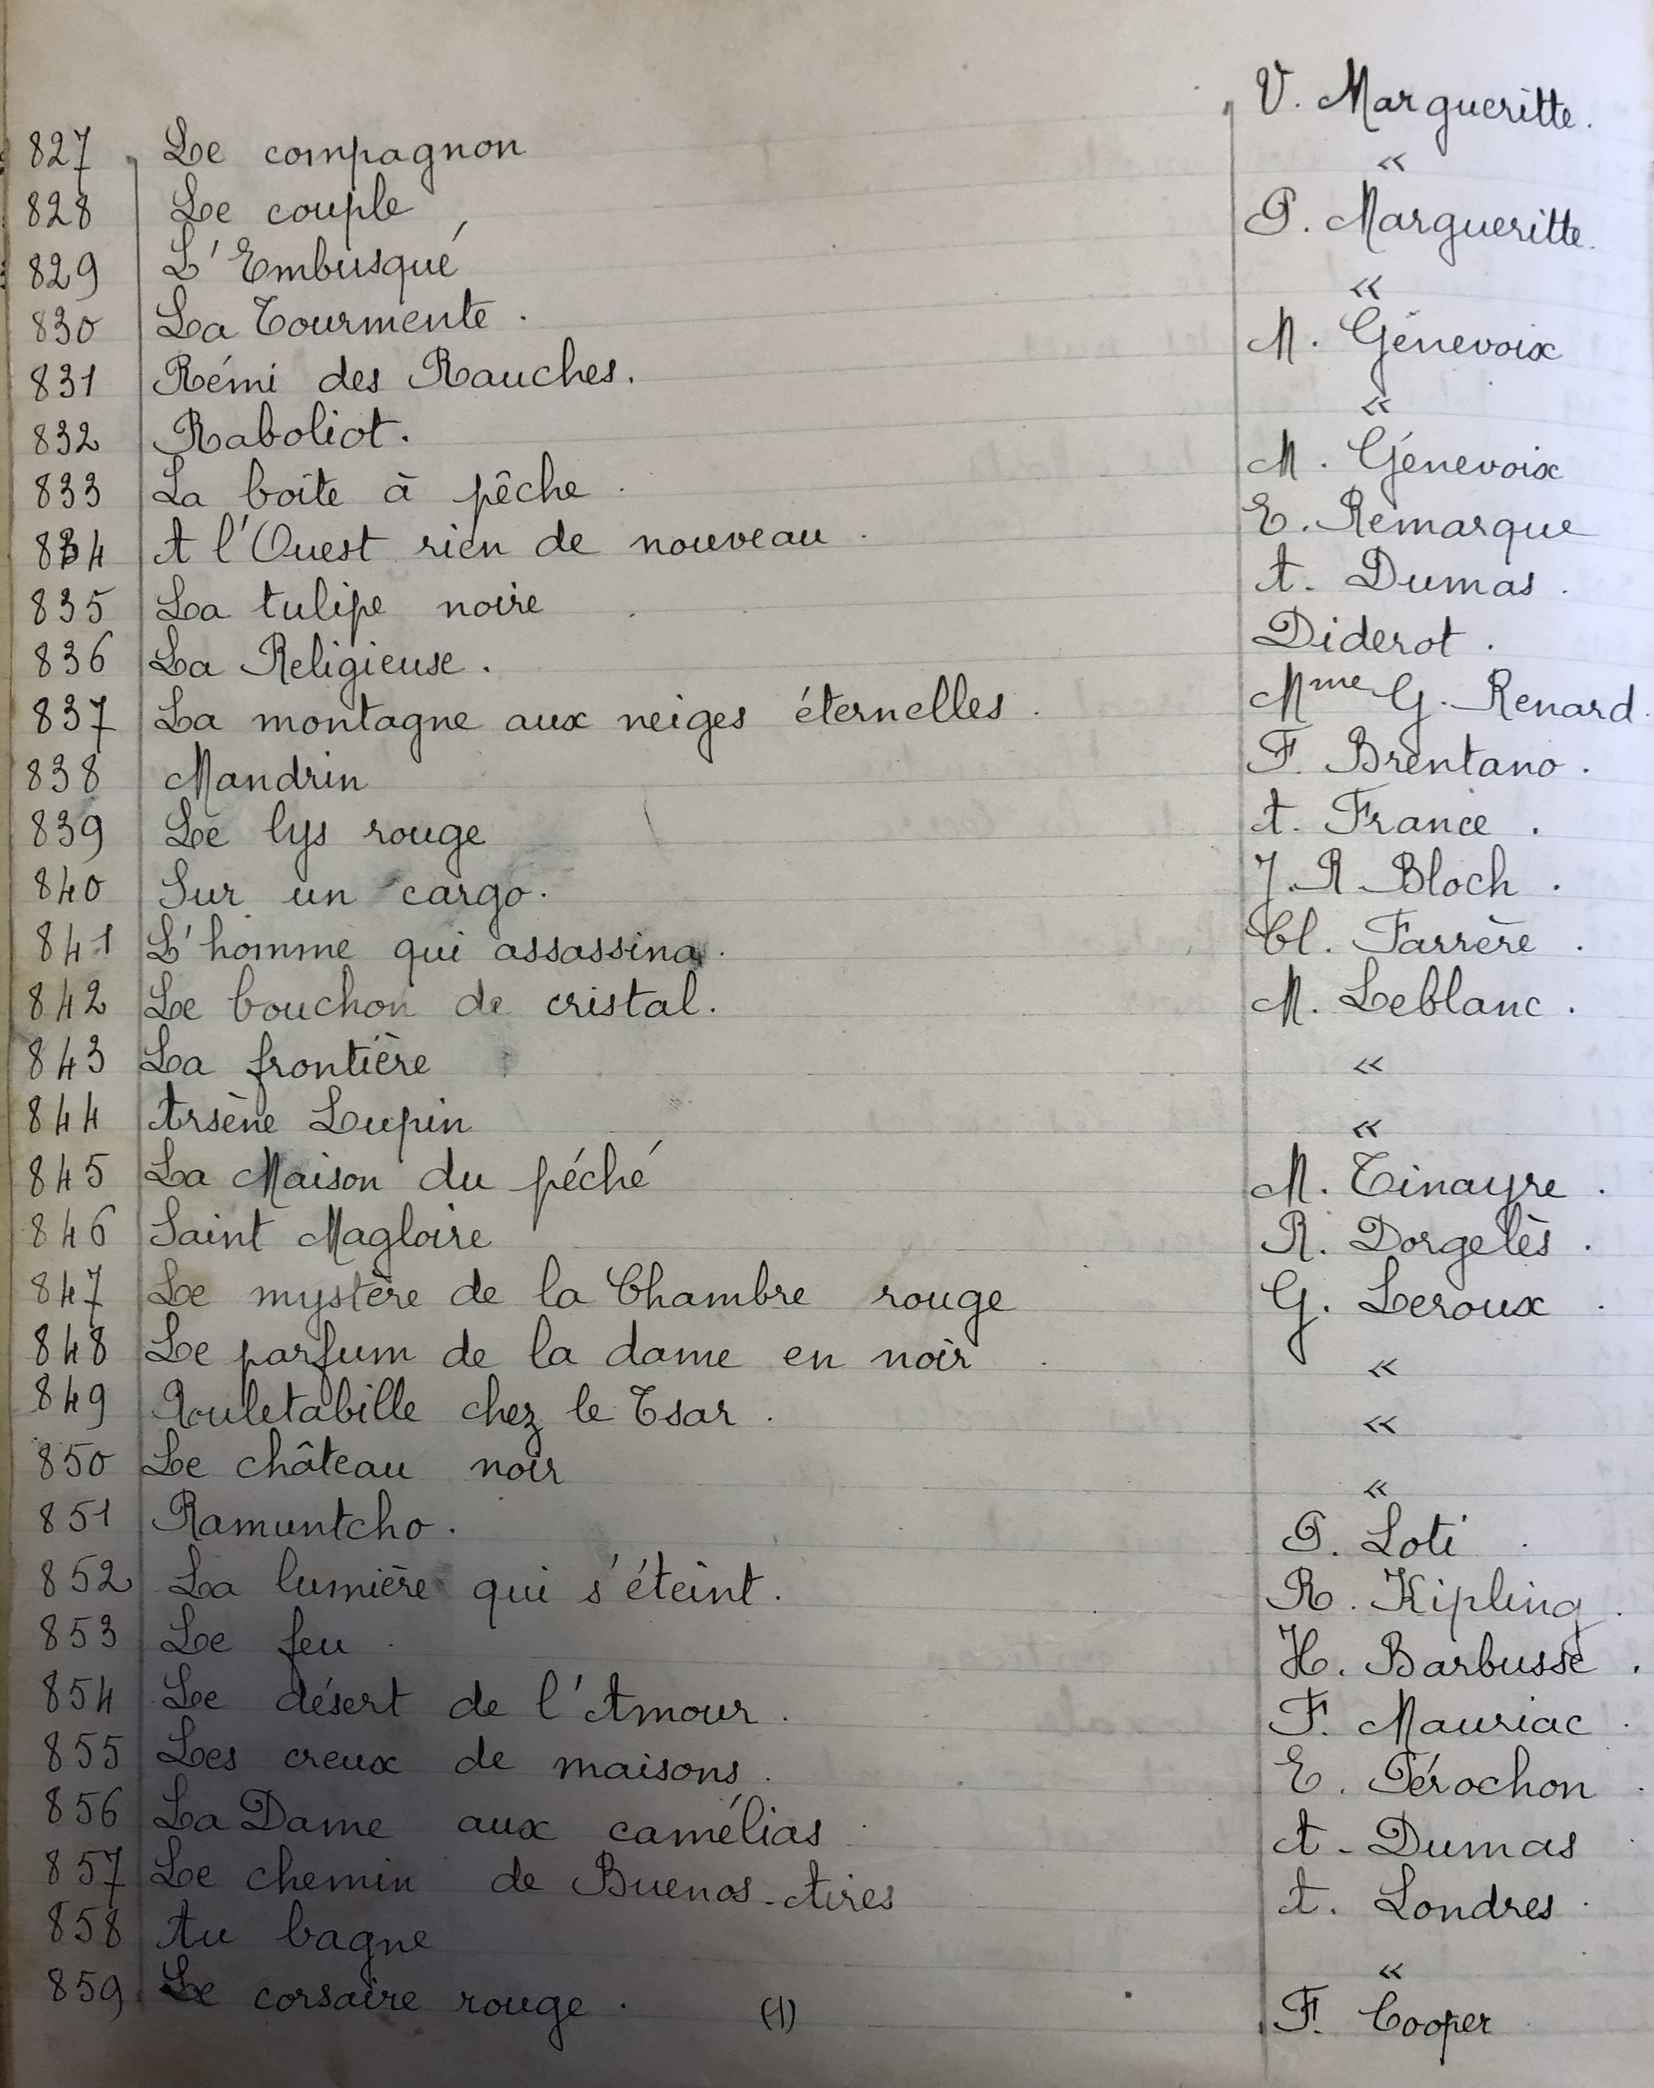 827 Le compagnon V. Margueritte.
828 Le couple «
829 L'Embusqué P. Margueritte.
830 La Tourmente. «
831 Rémi des Rauches. M. Génevoix
832 Raboliot. «
833 La boîte à pêche. M. Génevoix
834 A l'Ouest rien de nouveau. E. Remarque
835 La tulipe noire. A. Dumas.
836 La Religieuse. Diderot.
837 La montagne aux neiges éternelles. Mme G. Renard.
838 Mandrin F. Brentano.
839 Le lys rouge A. France.
840 Sur un cargo. J. R Bloch.
841 L'homme qui assassina. Cl. Farrère.
842 Le bouchon de cristal. M. Leblanc.
843 La frontière «
844 Arsène Lupin «
845 La Maison du péché M. Tinayre.
846 Saint Magloire R. Dorgelès.
847 Le mystère de la Chambre rouge G. Leroux.
848 Le parfum de la dame en noir. «
849 Rouletabille chez le Tsar. «
850 Le château noir «
851 Ramuntcho. P. Loti.
852 La lumière qui s'éteint. R. Kipling.
853 Le feu. H. Barbusse.
854 Le désert de l'Amour. F. Mauriac.
855 Les creux de maisons. E. Pérochon.
856 La Dame aux camélias. A. Dumas.
857 Le chemin de Buenos-Aires A. Londres.
858 Au bagne «
859 Le corsaire rouge. (1) F. Cooper